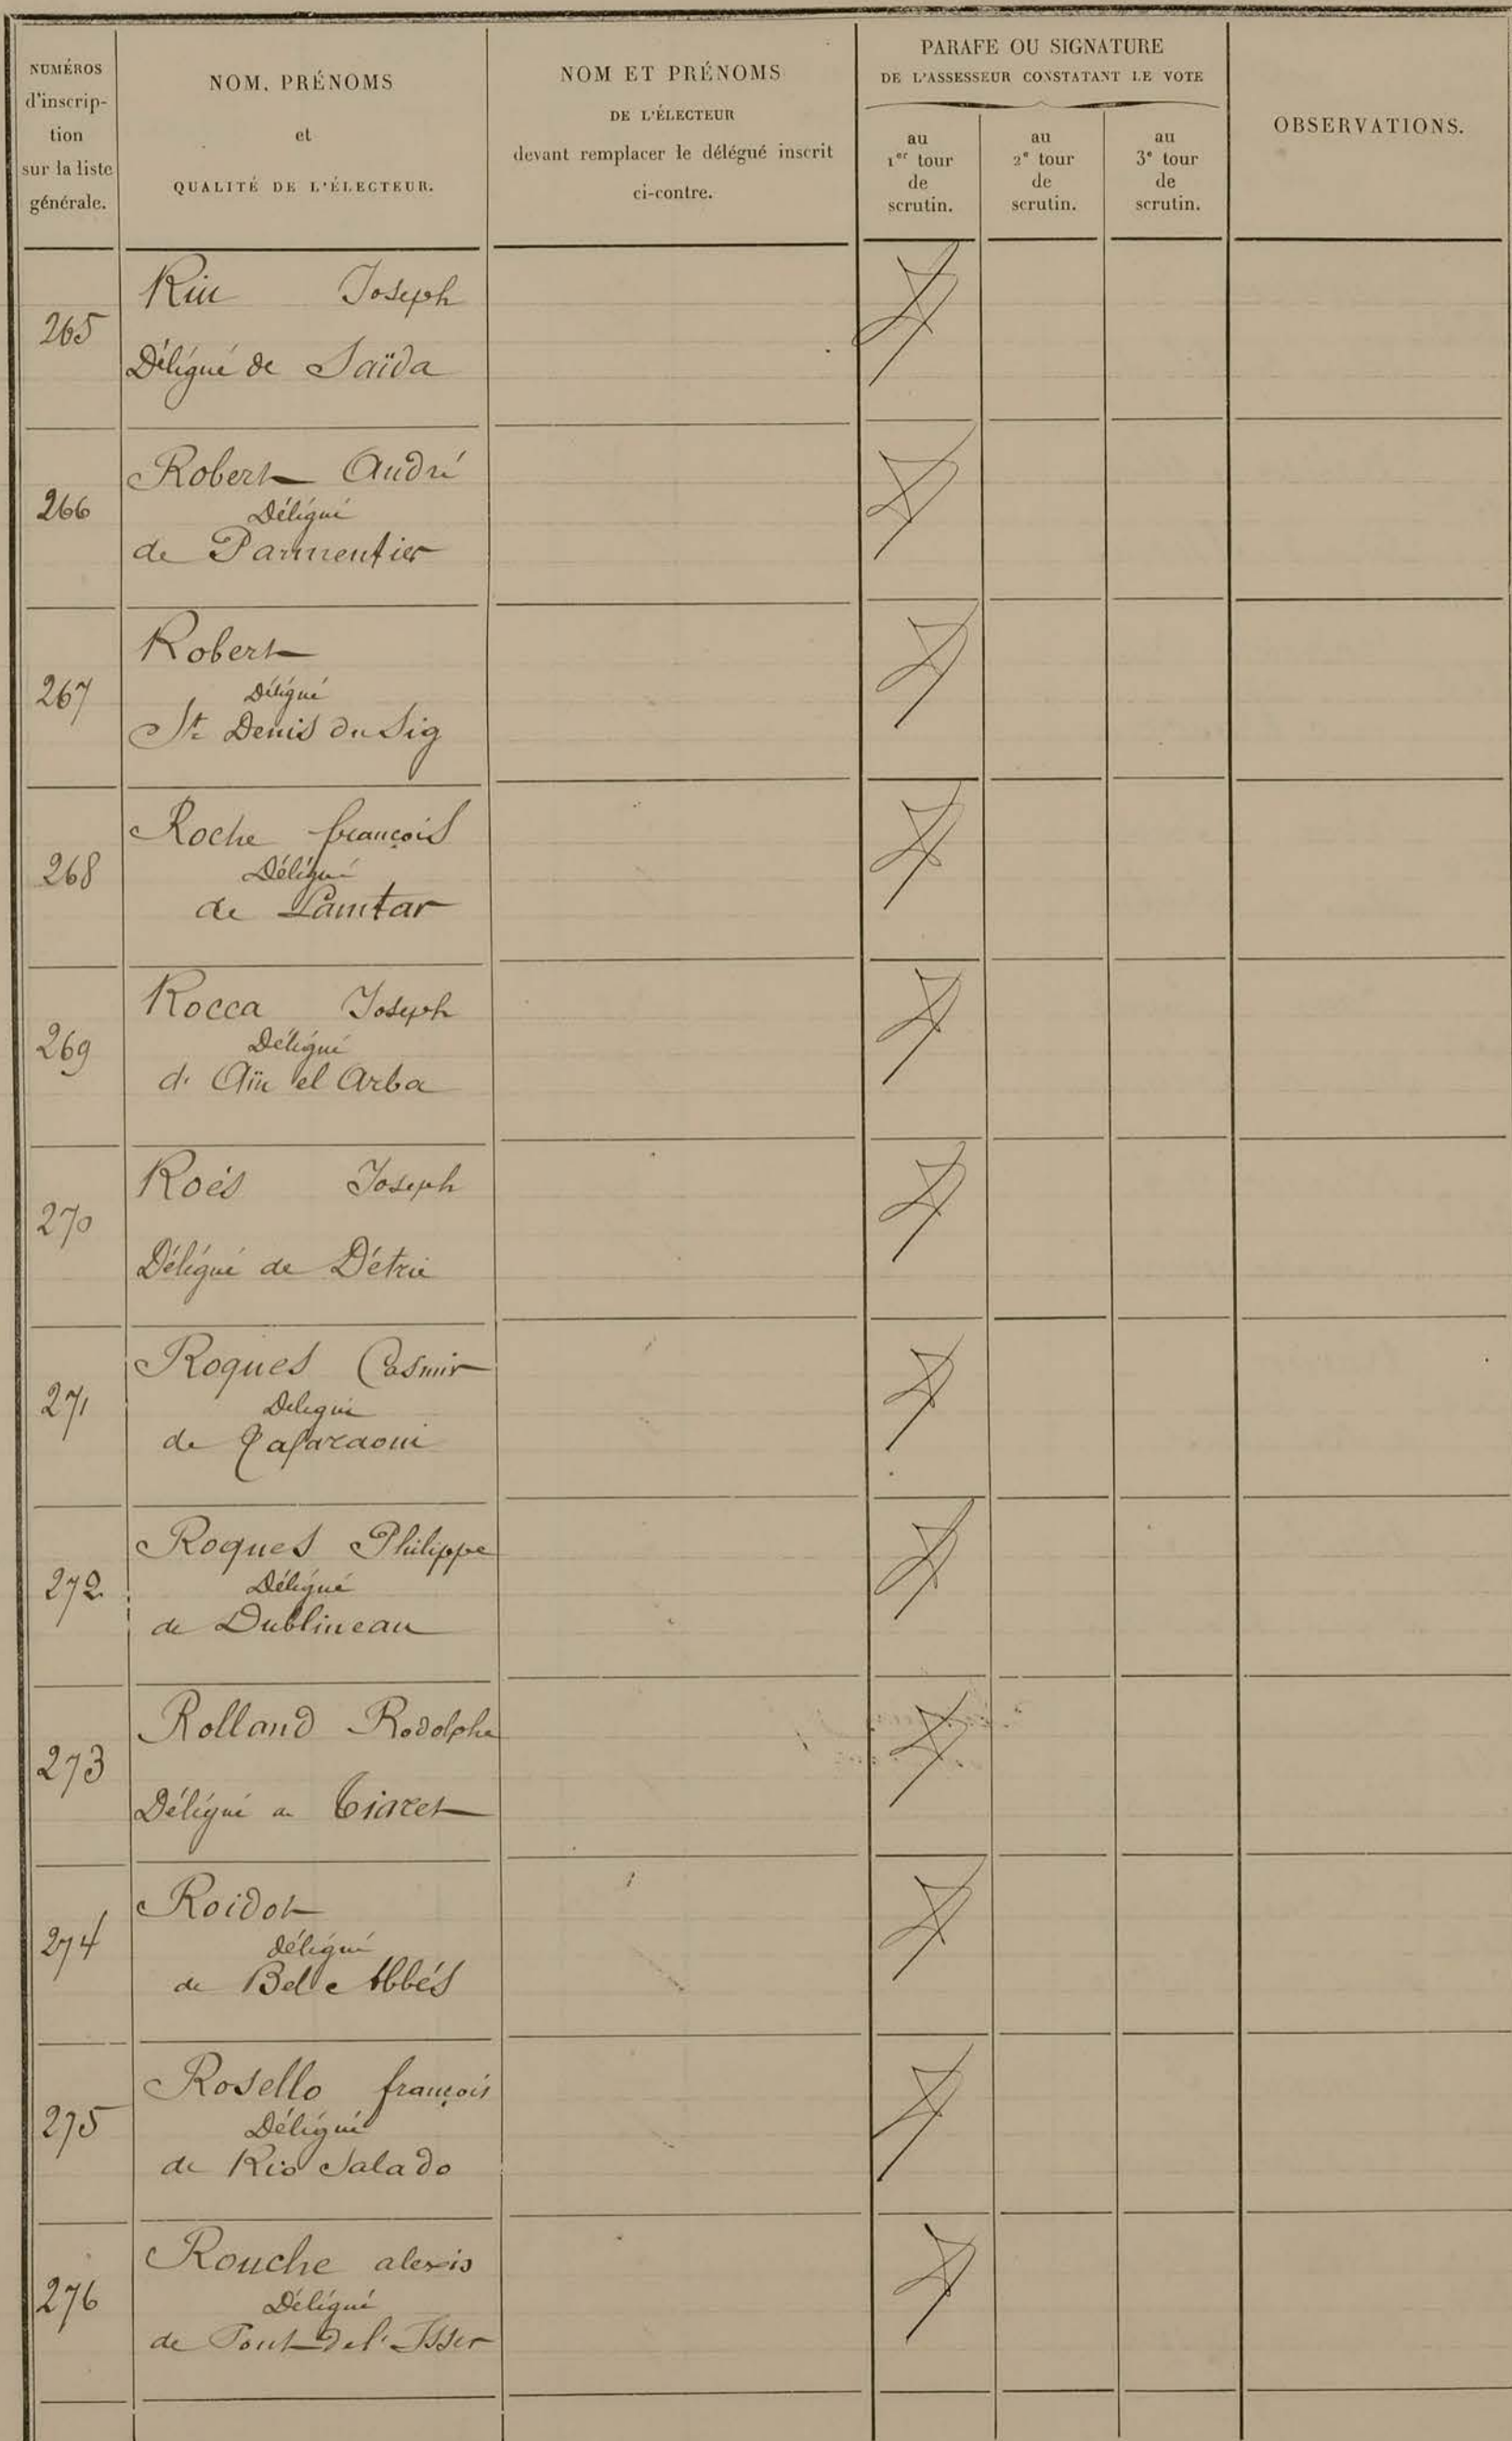 NUMÉROS
d'inscrip-
tion
sur la liste
générale.
NOM, PRÉNOMS
et
QUALITÉ DE L'ÉLECTEUR.
NOM ET PRÉNOMS
DE L'ÉLECTEUR
devant remplacer le délégué inscrit
ci-contre.
PARAFE OU SIGNATURE
DE L'ASSESSEUR CONSTATANT LE VOTE
au
1er tour
de
scrutin.
au
2e tour
de
scrutin.
au
3e tour
de
scrutin.
OBSERVATIONS.
265
Joseph
Délégué de Saïda
266
Robert André
Délégué
de Parmentier
267
Robert
Délégué
St Denis du Sig
268
Roche françois
Délégué
de Lamtar
269
Rocca Joseph
Délégué
d' Aïn el Arba
270
Roés Joseph
Délégué de Détrie
271
Roques Casmir
Délégué
de Tafaraoui
272
Roques Philippe
Délégué
de Dublineau
273
Rolland Rodolphe
Délégué de Tiaret
274
Roidot
délégué
de Bel Abbés
275
Rosello françois
Délégué
de Rio Salado
276
Rouche alexis
Délégué
de Pont de l'Isser